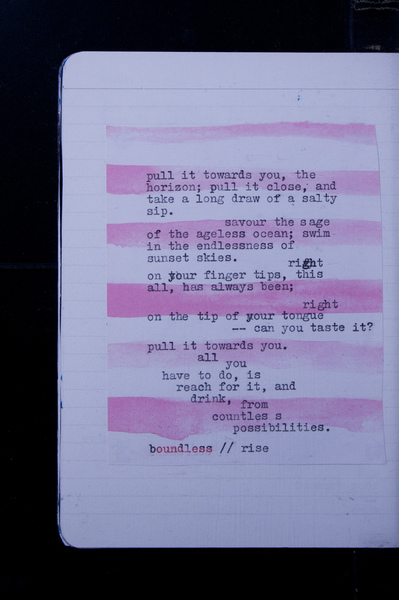 pull it towards you, the
horizon; pull it close, and
take a long draw of a salty
sip.
savour the sage
of the ageless ocean; swim
in the endlessness of
sunset skies.
right
on your finger tips, this
all, has always been;
right
on the tip of your tongue
-- can you taste it?
pull it towards you.
all
you
have to do, is
reach for it, and
drink,
from
countles s
possibilities.
boundless // rise